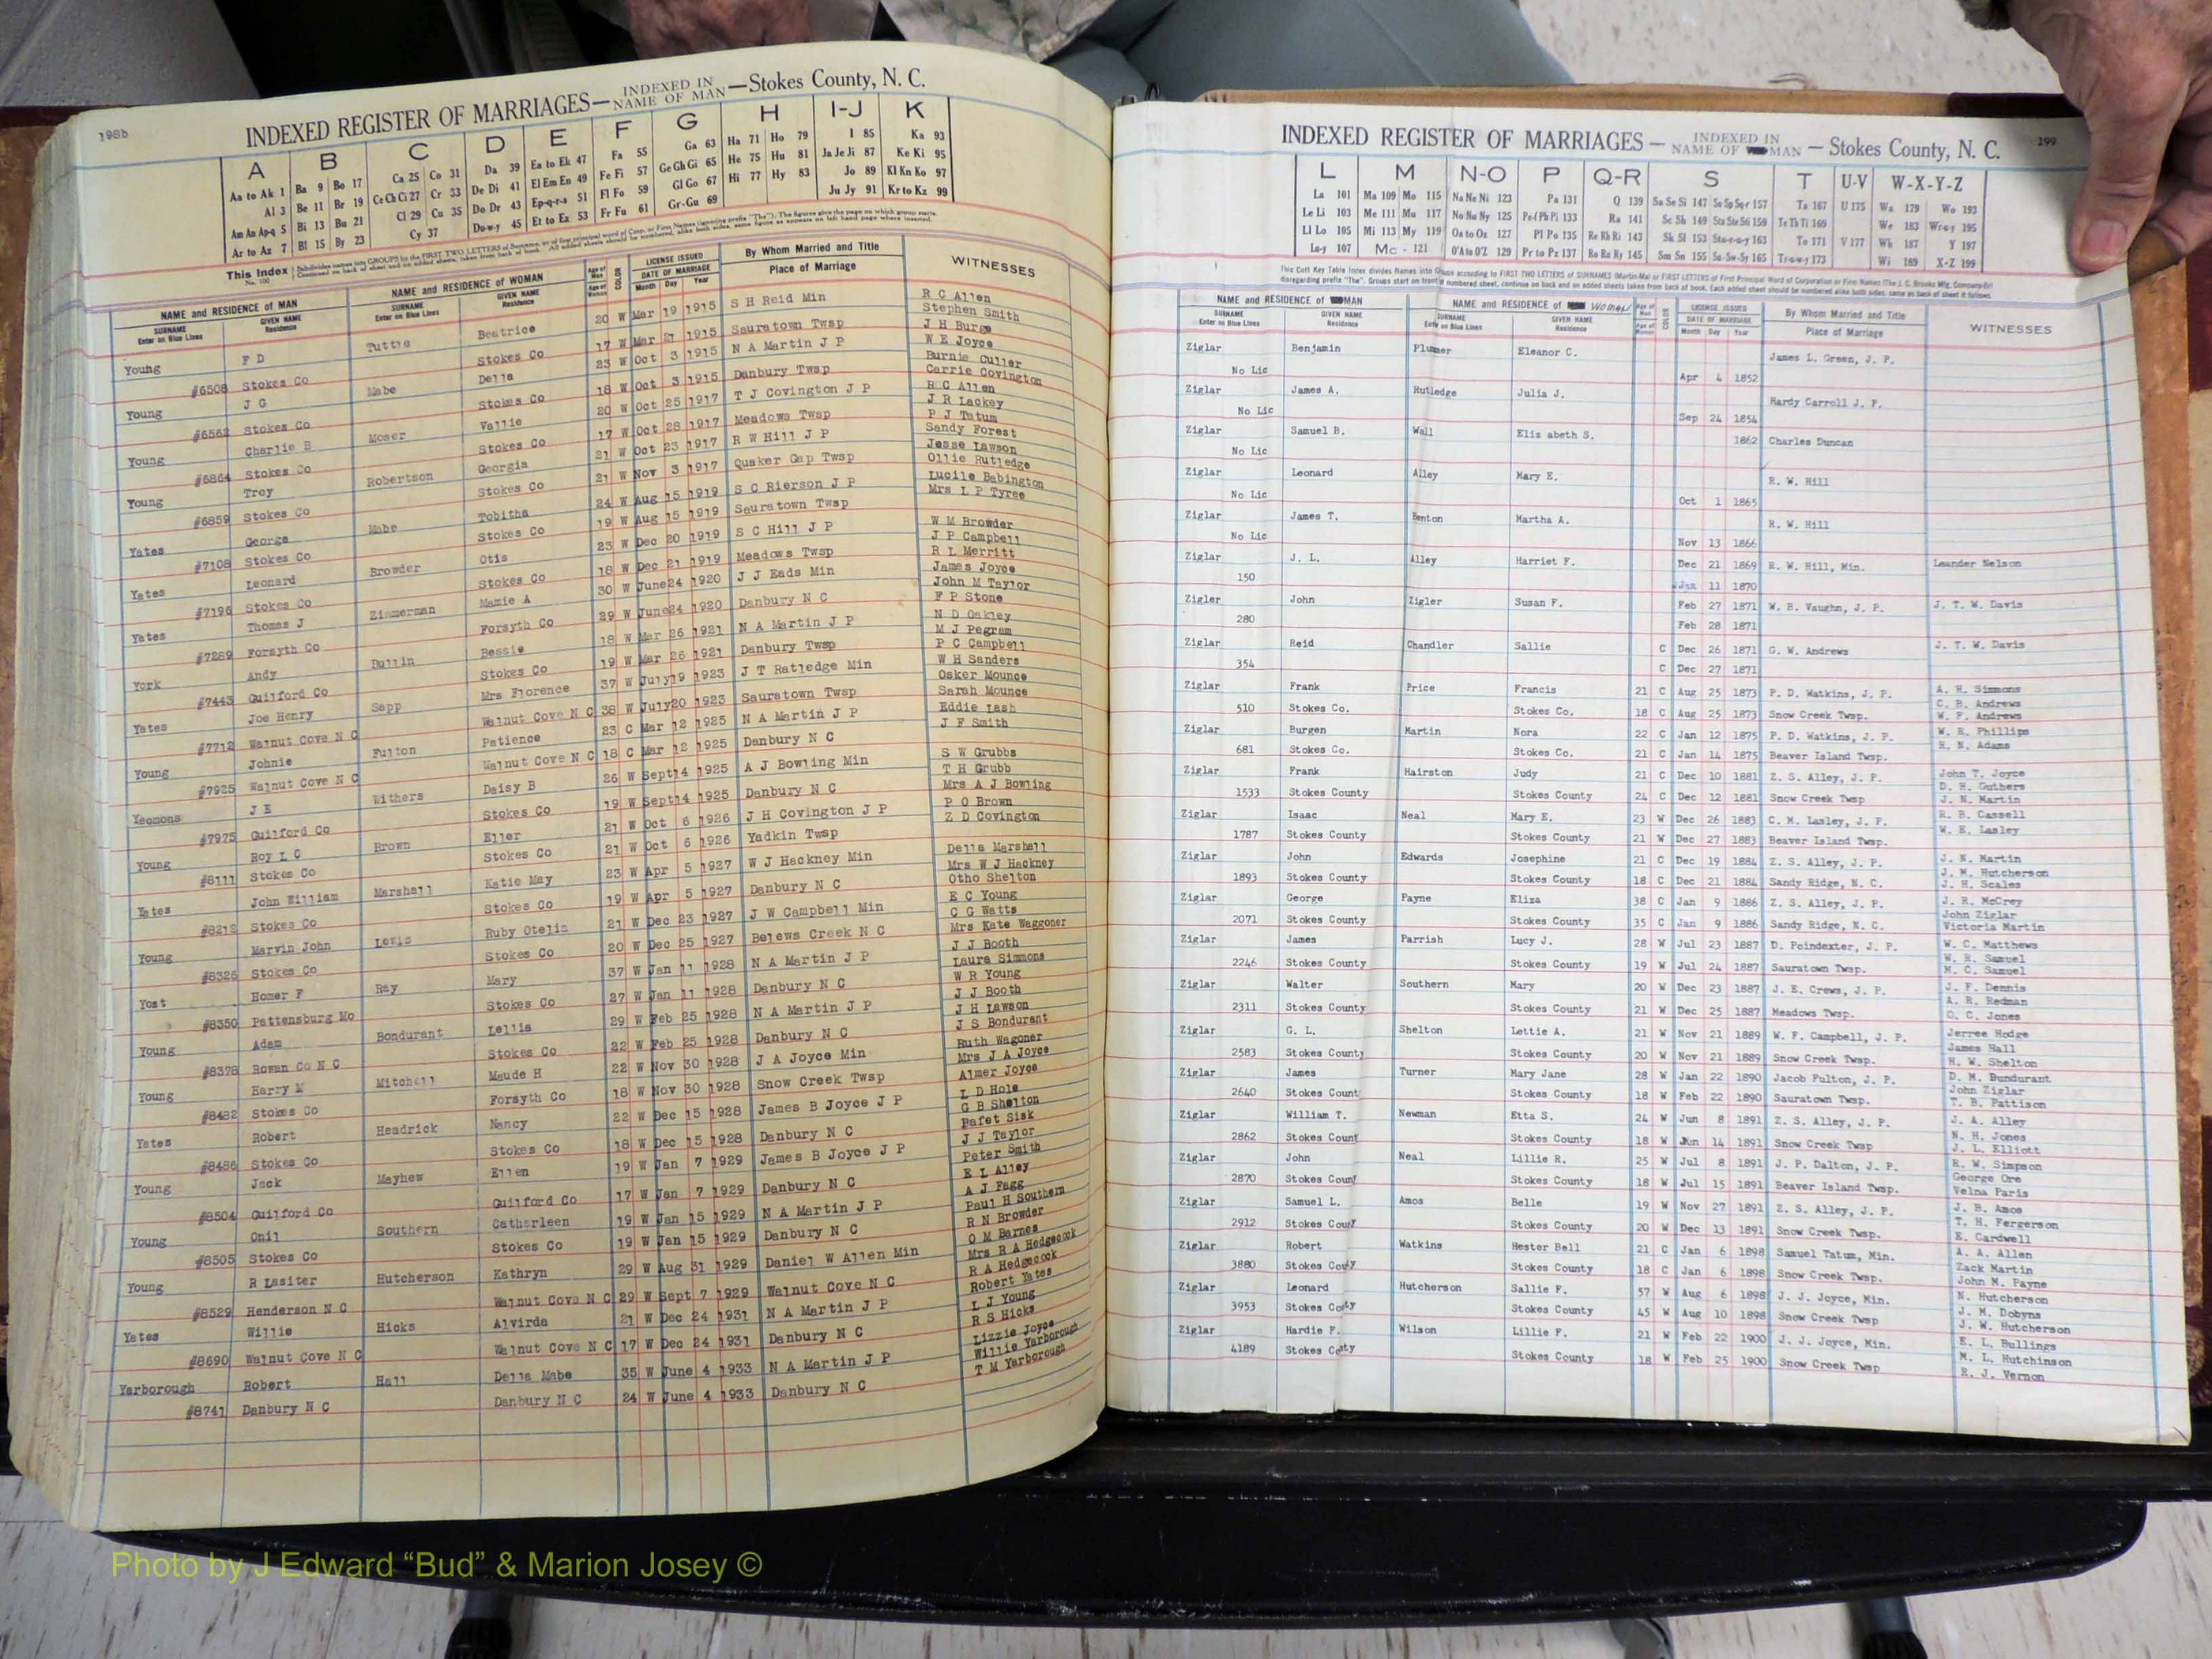 198b
INDEXED REGISTER OF MARRIAGES— INDEXED IN NAME OF MAN —Stokes County, N. C.
A B C D E F G H I-J K
Aa to Ak 1 Ba 9 Bo 17 Ca 25 Co 31 Da 39 Ea to Ek 47 Fa 55 Ga 63 Ha 71 Ho 79 I 85 Ka 93
Al 3 Be 11 Br 19 Ce Ch Ci 27 Cr 33 De Di 41 El Em En 49 Fe Fi 57 Ge Gh Gi 65 He 75 Hu 81 Ja Je Ji 87 Ke Ki 95
Am An Ap-q 5 Bi 13 Bu 21 Cl 29 Cu 35 Do Dr 43 Ep-q-r-s 51 Fl Fo 59 Gl Go 67 Hi 77 Hy 83 Jo 89 Kl Kn Ko 97
Ar to Az 7 Bl 15 By 23 Cy 37 Du-w-y 45 Et to Ez 53 Fr Fu 61 Gr-Gu 69 Ju Jy 91 Kr to Kz 99
This Index No. 100
NAME and RESIDENCE of MAN NAME and RESIDENCE of WOMAN Age of Man Age of Woman COLOR LICENSE ISSUED DATE OF MARRIAGE By Whom Married and Title Place of Marriage WITNESSES
SURNAME Enter on Blue Lines GIVEN NAME Residence SURNAME Enter on Blue Lines GIVEN NAME Residence Month Day Year
Young F D Tuttle Beatrice 20 W Mar 19 1915 S H Reid Min R C Allen
#6508 Stokes Co Stokes Co 17 W Mar 21 1915 Sauratown Twsp Stephen Smith J H Burge
Young J G Mabe Della 23 W Oct 3 1915 N A Martin J P W E Joyce
#6562 Stokes Co Stokes Co 18 W Oct 3 1915 Danbury Twsp Burnie Culler Carrie Covington
Young Charlie B Moser Vallie 20 W Oct 25 1917 T J Covington J P R C Allen
#6864 Stokes Co Stokes Co 17 W Oct 28 1917 Meadows Twsp J R Lackey P J Tatum
Young Troy Robertson Georgia 21 W Oct 23 1917 R W Hill J P Sandy Forest
#6859 Stokes Co Stokes Co 21 W Nov 3 1917 Quaker Gap Twsp Jesse Lawson Ollie Rutledge
Yates George Mabe Tobitha 24 W Aug 15 1919 S C Rierson J P Lucile Babington
#7108 Stokes Co Stokes Co 19 W Aug 15 1919 Sauratown Twsp Mrs L P Tyree
Yates Leonard Browder Otis 23 W Dec 20 1919 S C Hill J P W M Browder
#7196 Stokes Co Stokes Co 18 W Dec 21 1919 Meadows Twsp J P Campbell R L Merritt
Yates Thomas J Zimmerman Mamie A 30 W June 24 1920 J J Eads Min James Joyce
#7289 Forsyth Co Forsyth Co 29 W June 24 1920 Danbury N C John M Taylor F P Stone
York Andy Bullin Bessie 18 W Mar 26 1921 N A Martin J P N D Oakley
#7443 Guilford Co Stokes Co 19 W Mar 26 1921 Danbury Twsp M J Pegram P C Campbell
Yates Joe Henry Sapp Mrs Florence 37 W July 19 1923 J T Ratledge Min W H Sanders
#7712 Walnut Cove N C Walnut Cove N C 38 W July 20 1923 Sauratown Twsp Osker Mounce Sarah Mounce
Young Johnie Fulton Patience 23 C Mar 12 1925 N A Martin J P Eddie Lash
#7925 Walnut Cove N C Walnut Cove N C 18 C Mar 12 1925 Danbury N C J F Smith
Yeomons J E Withers Daisy B 26 W Sept 14 1925 A J Bowling Min S W Grubbs
#7975 Guilford Co Stokes Co 19 W Sept 14 1925 Danbury N C T H Grubb Mrs A J Bowling
Young Roy L C Brown Eller 21 W Oct 6 1926 J H Covington J P P O Brown
#8111 Stokes Co Stokes Co 21 W Oct 6 1926 Yadkin Twsp Z D Covington
Yates John William Marshall Katie May 23 W Apr 5 1927 W J Hackney Min Della Marshall
#8212 Stokes Co Stokes Co 19 W Apr 5 1927 Danbury N C Mrs W J Hackney Otho Shelton
Young Marvin John Lewis Ruby Otelia 21 W Dec 23 1927 J W Campbell Min E C Young
#8326 Stokes Co Stokes Co 20 W Dec 25 1927 Belews Creek N C C G Watts Mrs Kate Waggoner
Yost Homer F Ray Mary 37 W Jan 11 1928 N A Martin J P J J Booth
#8350 Pattensburg Mo Stokes Co 27 W Jan 11 1928 Danbury N C Laura Simmons W R Young
Young Adam Bondurant Lellia 29 W Feb 25 1928 N A Martin J P J J Booth
#8378 Rowan Co N C Stokes Co 22 W Feb 25 1928 Danbury N C J H Lawson J S Bondurant
Young Harry M Mitchell Maude H 22 W Nov 30 1928 J A Joyce Min Ruth Wagoner
#8482 Stokes Co Forsyth Co 18 W Nov 30 1928 Snow Creek Twsp Mrs J A Joyce Almer Joyce
Yates Robert Headrick Nancy 22 W Dec 15 1928 James B Joyce J P L D Hole
#8486 Stokes Co Stokes Co 18 W Dec 15 1928 Danbury N C G B Shelton Rafet Sisk
Young Jack Mayhew Ellen 19 W Jan 7 1929 James B Joyce J P J J Taylor
#8504 Guilford Co Guilford Co 17 W Jan 7 1929 Danbury N C Peter Smith E L Alley
Young Onil Southern Catherleen 19 W Jan 15 1929 N A Martin J P A J Fagg
#8505 Stokes Co Stokes Co 19 W Jan 15 1929 Danbury N C Paul H Southern R N Browder
Young R Lasiter Hutcherson Kathryn 29 W Aug 31 1929 Daniel W Allen Min O M Barnes
#8529 Henderson N C Walnut Cove N C 29 W Sept 7 1929 Walnut Cove N C Mrs R A Hedgecock R A Hedgecock
Yates Willie Hicks Alvirda 21 W Dec 24 1931 N A Martin J P Robert Yates
#8690 Walnut Cove N C Walnut Cove N C 17 W Dec 24 1931 Danbury N C L J Young R S Hicks
Yarborough Robert Hall Della Mabe 35 W June 4 1933 N A Martin J P Lizzie Joyce
#8741 Danbury N C Danbury N C 24 W June 4 1933 Danbury N C Willie Yarborough T M Yarborough
INDEXED REGISTER OF MARRIAGES — INDEXED IN NAME OF MAN — Stokes County, N. C. 199
L M N-O P Q-R S T U-V W-X-Y-Z
La 101 Ma 109 Mo 115 Na Ne Ni 123 Pa 131 Q 139 Sa Se Si 147 So Sp Sq-r 157 Ta 167 U 175 Wa 179 Wo 193
Le Li 103 Me 111 Mu 117 No Nu Ny 125 Pe-f Ph Pi 133 Ra 141 Sc Sh 149 Sta Ste S6 159 Te Th Ti 169 We 183 Wr-o-y 195
Ll Lo 105 Mi 113 My 119 Oa to Oz 127 Pl Po 135 Re Rh Ri 143 Sk Sl 153 Sto-r-u-y 163 To 171 V 177 Wh 187 Y 197
Lu-y 107 Mc - 121 O'A to O'Z 129 Pr to Pz 137 Ro Ru Ry 145 Sm Sn 155 Su-Sw-Sy 165 Tr-u-w-y 173 Wi 189 X-Z 199
NAME and RESIDENCE of MAN NAME and RESIDENCE of WOMAN Age of Man Age of COLOR LICENSE ISSUED DATE OF MARRIAGE By Whom Married and Title Place of Marriage WITNESSES
SURNAME Enter on Blue Lines GIVEN NAME Residence SURNAME Enter on Blue Lines GIVEN NAME Residence Month Day Year
Ziglar Benjamin Plummer Eleanor C. James L. Green, J. P.
No Lic Apr 4 1852
Ziglar James A. Rutledge Julia J. Hardy Carroll J. P.
No Lic Sep 24 1854
Ziglar Samuel B. Wall Eliz abeth S. 1862 Charles Duncan
No Lic
Ziglar Leonard Alley Mary E. R. W. Hill
No Lic Oct 1 1865
Ziglar James T. Benton Martha A. R. W. Hill
No Lic Nov 13 1866
Ziglar J. L. Alley Harriet F. Dec 21 1869 R. W. Hill, Min. Leander Nelson
150 Jan 11 1870
Zigler John Zigler Susan F. Feb 27 1871 W. B. Vaughn, J. P. J. T. W. Davis
280 Feb 28 1871
Ziglar Reid Chandler Sallie C Dec 26 1871 G. W. Andrews J. T. W. Davis
354 C Dec 27 1871
Ziglar Frank Price Francis 21 C Aug 25 1873 P. D. Watkins, J. P. A. H. Simmons
510 Stokes Co. Stokes Co. 18 C Aug 25 1873 Snow Creek Twsp. C. B. Andrews W. F. Andrews
Ziglar Burgen Martin Nora 22 C Jan 12 1875 P. D. Watkins, J. P. W. R. Phillips
681 Stokes Co. Stokes Co. 21 C Jan 14 1875 Beaver Island Twsp. R. N. Adams
Ziglar Frank Hairston Judy 21 C Dec 10 1881 Z. S. Alley, J. P. John T. Joyce
1533 Stokes County Stokes County 24 C Dec 12 1881 Snow Creek Twsp D. H. Guthers J. N. Martin
Ziglar Isaac Neal Mary E. 23 W Dec 26 1883 C. M. Lasley, J. P. R. B. Cassell
1787 Stokes County Stokes County 21 W Dec 27 1883 Beaver Island Twsp. W. E. Lasley
Ziglar John Edwards Josephine 21 C Dec 19 1884 Z. S. Alley, J. P. J. N. Martin
1893 Stokes County Stokes County 18 C Dec 21 1884 Sandy Ridge, N. C. J. M. Hutcherson J. H. Scales
Ziglar George Payne Eliza 38 C Jan 9 1886 Z. S. Alley, J. P. J. R. McCrey
2071 Stokes County Stokes County 35 C Jan 9 1886 Sandy Ridge, N. C. John Ziglar Victoria Martin
Ziglar James Parrish Lucy J. 28 W Jul 23 1887 D. Poindexter, J. P. W. C. Matthews
2246 Stokes County Stokes County 19 W Jul 24 1887 Sauratown Twsp. W. R. Samuel M. C. Samuel
Ziglar Walter Southern Mary 20 W Dec 23 1887 J. E. Crews, J. P. J. F. Dennis
2311 Stokes County Stokes County 21 W Dec 25 1887 Meadows Twsp. A. R. Redman O. C. Jones
Ziglar G. L. Shelton Lettie A. 21 W Nov 21 1889 W. F. Campbell, J. P. Jerree Hodge
2583 Stokes County Stokes County 20 W Nov 21 1889 Snow Creek Twsp. James Hall H. W. Shelton
Ziglar James Turner Mary Jane 28 W Jan 22 1890 Jacob Fulton, J. P. D. M. Bundurant
2640 Stokes Count Stokes County 18 W Feb 22 1890 Sauratown Twsp. John Ziglar T. B. Pattison
Ziglar William T. Newman Etta S. 24 W Jun 8 1891 Z. S. Alley, J. P. J. A. Alley
2862 Stokes Count Stokes County 18 W Jun 14 1891 Snow Creek Twsp N. H. Jones J. L. Elliott
Ziglar John Neal Lillie R. 25 W Jul 8 1891 J. P. Dalton, J. P. R. W. Simpson
2870 Stokes Coun Stokes County 18 W Jul 15 1891 Beaver Island Twsp. George Ore Velna Paris
Ziglar Samuel L. Amos Belle 19 W Nov 27 1891 Z. S. Alley, J. P. J. B. Amos
2912 Stokes Coun Stokes County 20 W Dec 13 1891 Snow Creek Twsp. T. H. Fergerson E. Cardwell
Ziglar Robert Watkins Hester Bell 21 C Jan 6 1898 Samuel Tatum, Min. A. A. Allen
3880 Stokes County Stokes County 18 C Jan 6 1898 Snow Creek Twsp. Zack Martin John M. Payne
Ziglar Leonard Hutcherson Sallie F. 57 W Aug 6 1898 J. J. Joyce, Min. N. Hutcherson
3953 Stokes County Stokes County 45 W Aug 10 1898 Snow Creek Twsp J. M. Dobyns J. W. Hutcherson
Ziglar Hardie P. Wilson Lillie F. 21 W Feb 22 1900 J. J. Joyce, Min. E. L. Bullings
4189 Stokes County Stokes County 18 W Feb 25 1900 Snow Creek Twsp M. L. Hutchinson R. J. Vernon
Photo by J Edward “Bud” & Marion Josey ©